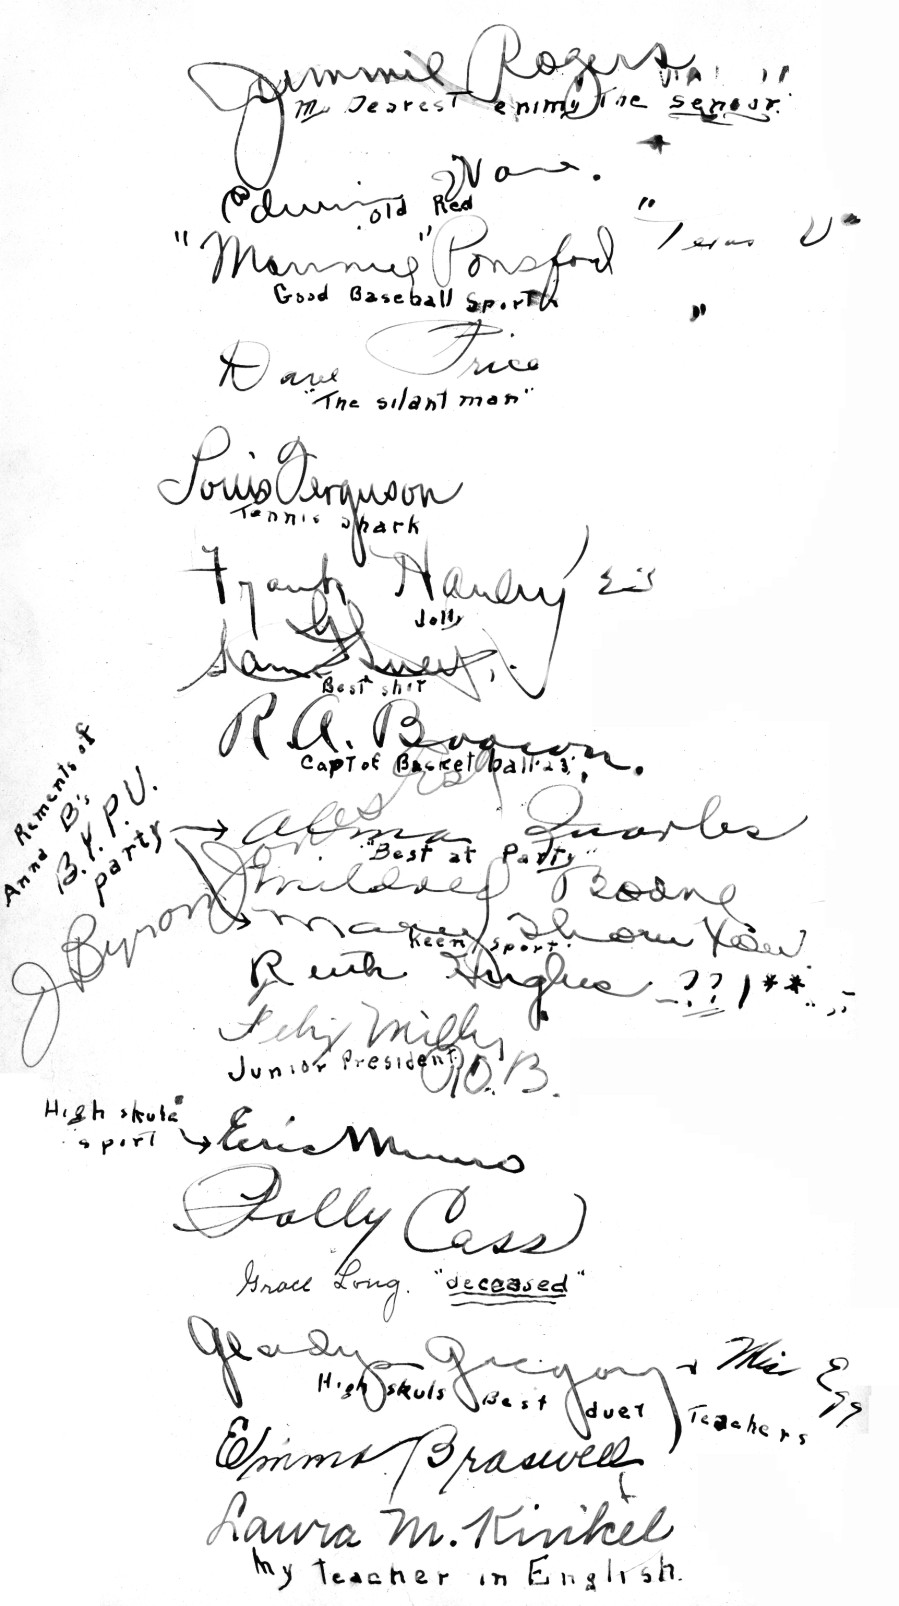 Jimmie Rogers
My Dearest enimy The senior.
Edwin
old Red
"Mannie" Ponsford "Texas U"
Good Baseball Sport
Dave Price
"The silant man"
Louis Ferguson
Tennis shark
Frank
Jolly
Sam
Best
R. A.
Capt of Basket ball '23'
Rements of
Anna B's
B.Y.P.U.
party
Alma Quarles
"Best at Party"
Mildred Boone
Mary
Keen sport.
J Byron Jones
Ruth Hughes ??!**
Felix
Junior President
O. B.
High skule
sport
Eric Munro
Polly Cass
Grace Long. "deceased"
Gladys Gregory + Miss
High skuls Best duet Teachers
Emma Braswell
Laura M. Kinkel
My teacher in English.